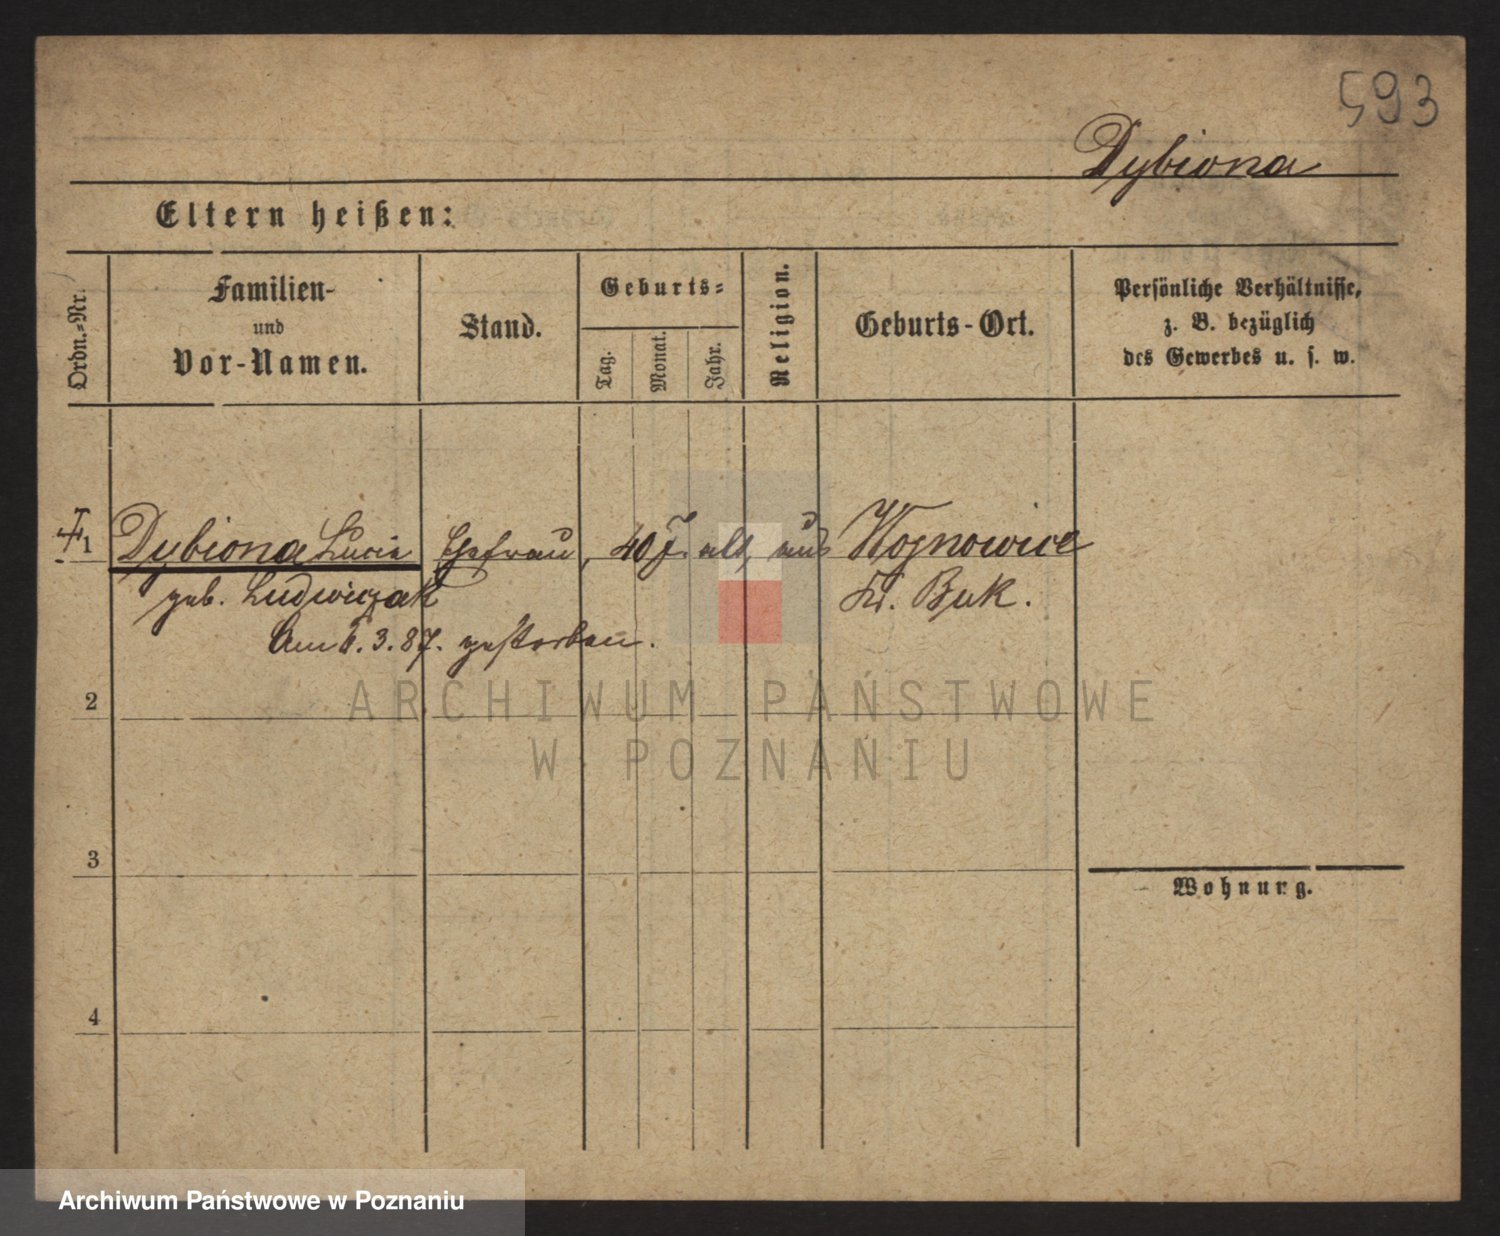 593
Dybiona
Eltern heißen:
Ordn.-Nr.
Familien-
und
Vor-Namen.
Stand.
Geburts-
Tag.
Monat.
Jahr.
Religion.
Geburts-Ort.
Persönliche Verhältnisse,
z. B. bezüglich
des Gewerbes u. s. w.
1 Dybiona Lucie Ehefrau, 40 J. alt, aus Wojnowice
geb. Ludwiczak Kr. Buk.
Am 6.3.87. gestorben.
2
ARCHIWUM PAŃSTWOWE
W POZNANIU
3
Wohnung.
4
Archiwum Państwowe w Poznaniu